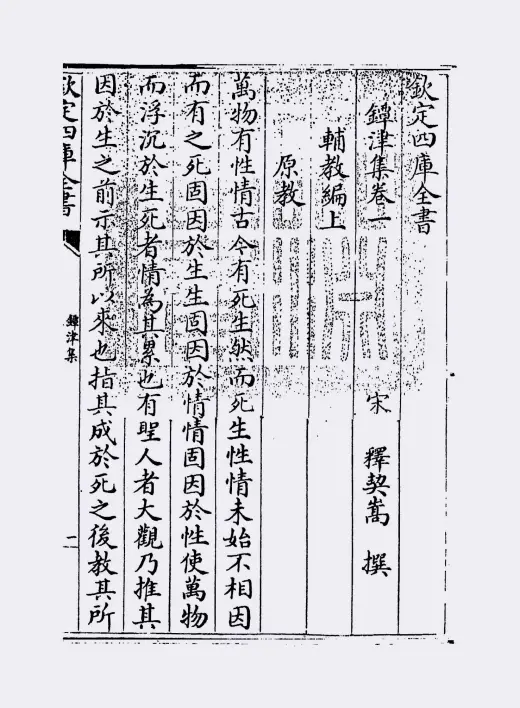 欽定四庫全書
鐔津集卷一
宋 釋契嵩 撰
輔教編上
原教
萬物有性情古今有死生然而死生性情未始不相因
而有之死固因於生生固因於情情固因於性使萬物
而浮沉於生死者情為其累也有聖人者大觀乃推其
因於生之前示其所以來也指其成於死之後教其所
欽定四庫全書
鐔津集
一